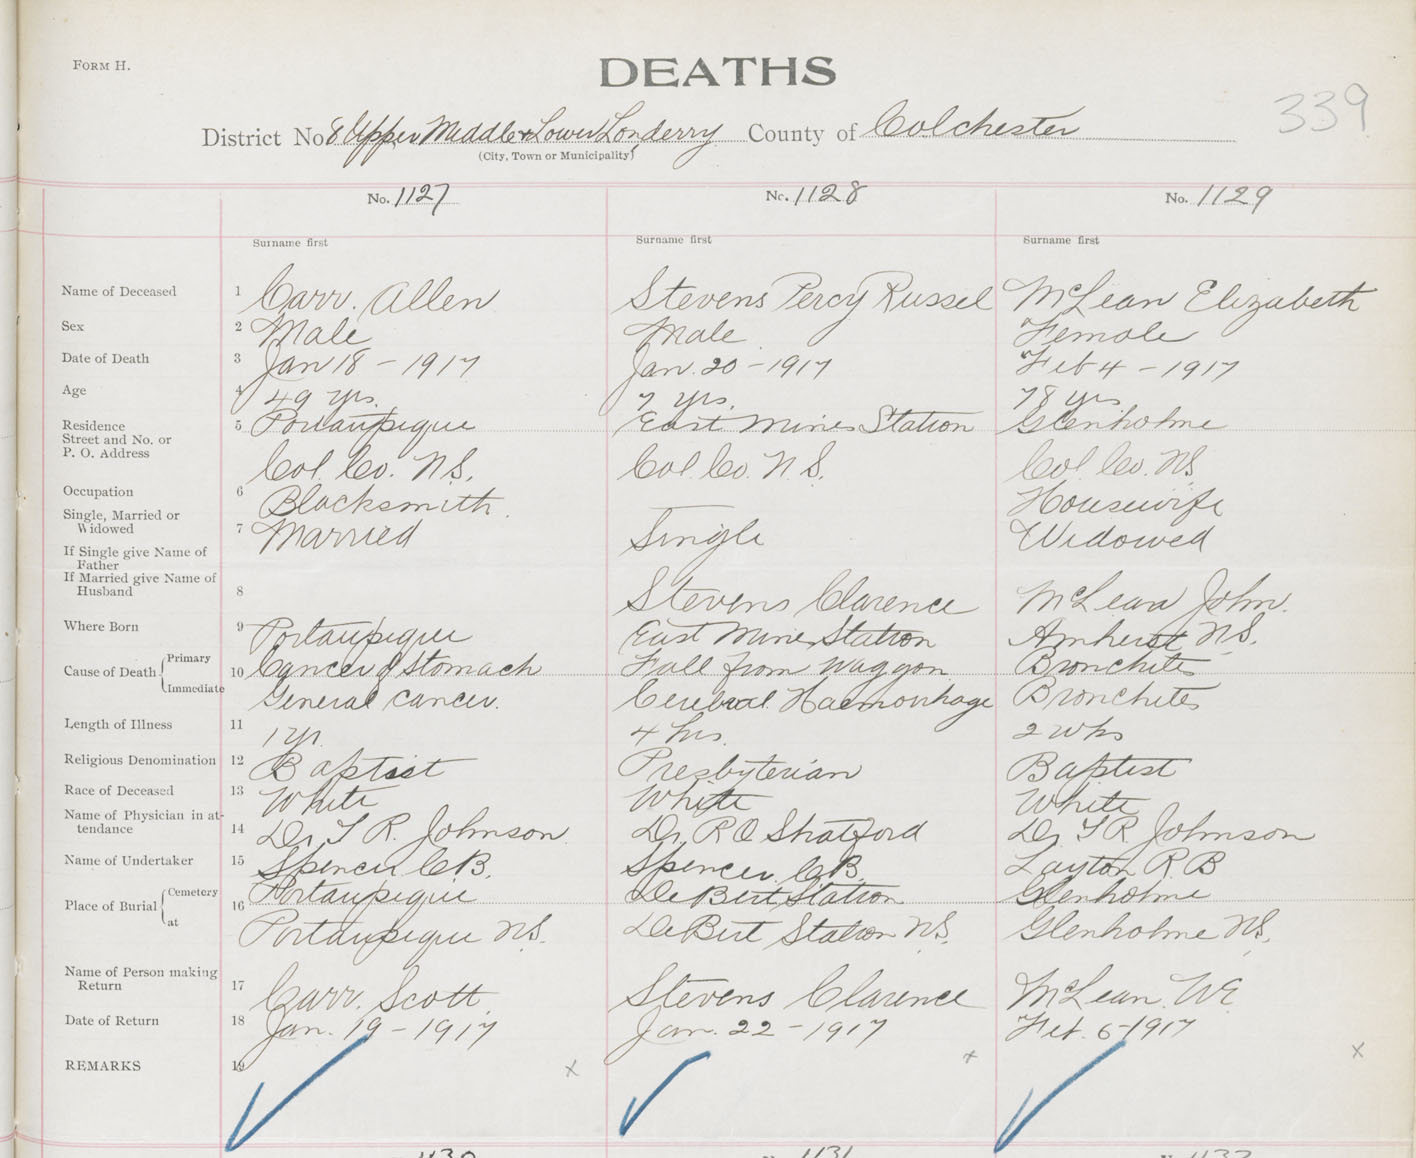 FORM H.
DEATHS
339
District No 8 Upper Middle & Lower Londerry County of Colchester
(City, Town or Municipality)
No. 1127 No. 1128 No. 1129
Surname first Surname first Surname first
Name of Deceased 1 Carr. Allen Stevens Percy Russel McLean Elizabeth
Sex 2 Male Male Female
Date of Death 3 Jan 18 - 1917 Jan. 20 - 1917 Feb 4 - 1917
Age 4 49 yrs. 7 yrs. 78 yrs
Residence 5 Portaupique East Mines Station Glenholme
Street and No. or
P. O. Address Col. Co. N.S. Col. Co. N.S. Col. Co. N.S.
Occupation 6 Blacksmith. Housewife
Single, Married or
Widowed 7 Married Single Widowed
If Single give Name of
Father
If Married give Name of
Husband 8 Stevens Clarence McLean John.
Where Born 9 Portaupique East Mines Station Amherst N.S.
Cause of Death Primary 10 Cancer of Stomach Fall from Waggon Bronchites
Immediate General Cancer. Cerebral Haemorrhage Bronchites
Length of Illness 11 1 yr. 4 hrs. 2 wks
Religious Denomination 12 Baptist Presbyterian Baptist
Race of Deceased 13 White White White
Name of Physician in at-
tendance 14 Dr. T R. Johnson Dr. R O Shatford Dr. T R Johnson
Name of Undertaker 15 Spencer C B. Spencer. C B. Layton R B
Place of Burial Cemetery 16 Portaupique DeBert Station Glenholme
at Portaupique N.S. DeBert Station N.S. Glenholme N.S.
Name of Person making
Return 17 Carr. Scott Stevens Clarence McLean. W E
Date of Return 18 Jan. 19 - 1917 Jan. 22 - 1917 Feb. 6 - 1917
REMARKS 19 x x x
1130 1131 1132